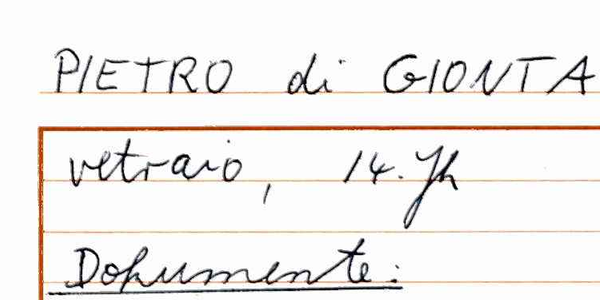 PIETRO di GIONTA
vetraio, 14. Jh
Dokumente: